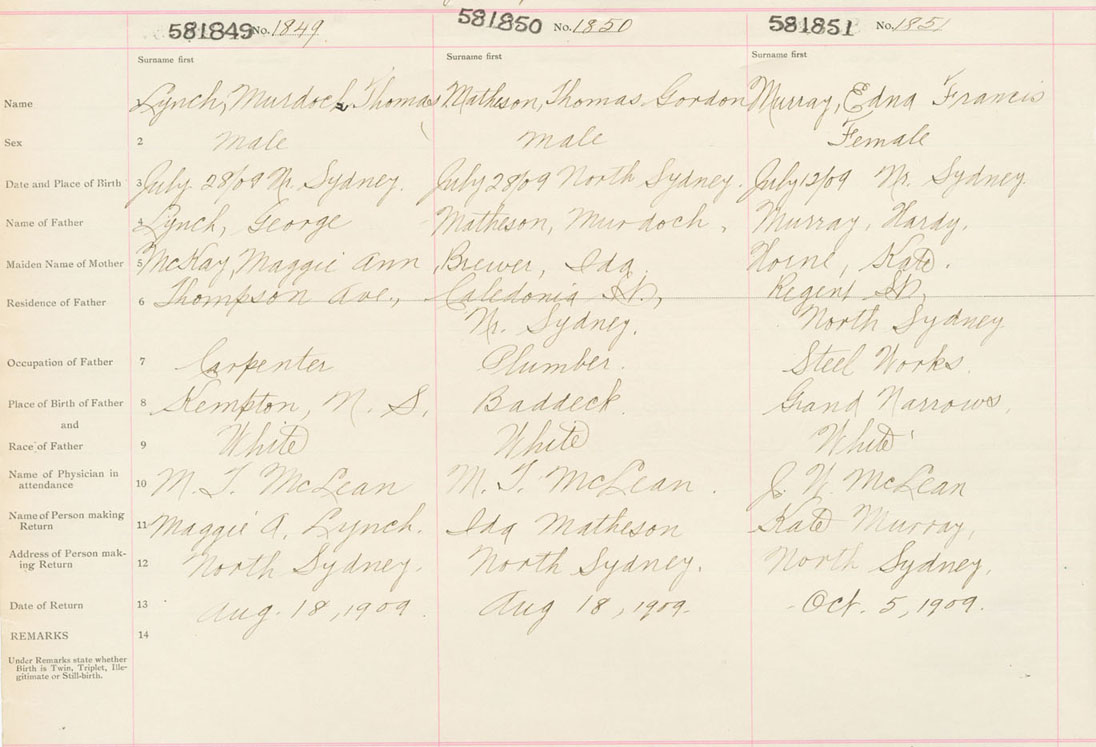 581849 No. 1849 581850 No. 1850 581851 No. 1851
Surname first Surname first Surname first
Name Lynch, Murdoch Thomas Matheson, Thomas Gordon Murray, Edna Francis
Sex 2 Male Male Female
Date and Place of Birth 3 July 28/09 Nr. Sydney. July 28/09 North Sydney. July 12/09 Nr. Sydney.
Name of Father 4 Lynch, George Matheson, Murdoch, Murray, Hardy.
Maiden Name of Mother 5 McKay, Maggie Ann, Brewer, Ida, Horne, Kate.
Residence of Father 6 Thompson Ave., Caledonia St., Regent St,
Nr. Sydney. North Sydney
Occupation of Father 7 Carpenter Plumber. Steel Works.
Place of Birth of Father 8 Kempton, N. S. Baddeck. Grand Narrows,
and
Race of Father 9 White White White
Name of Physician in
attendance 10 M. T. McLean M. T. McLean. J. McLean
Name of Person making
Return 11 Maggie A. Lynch. Ida Matheson Kate Murray,
Address of Person mak-
ing Return 12 North Sydney. North Sydney. North Sydney.
Date of Return 13 Aug. 18, 1909. Aug 18, 1909. Oct. 5, 1909.
REMARKS 14
Under Remarks state whether
Birth is Twin, Triplet, Ille-
gitimate or Still-birth.